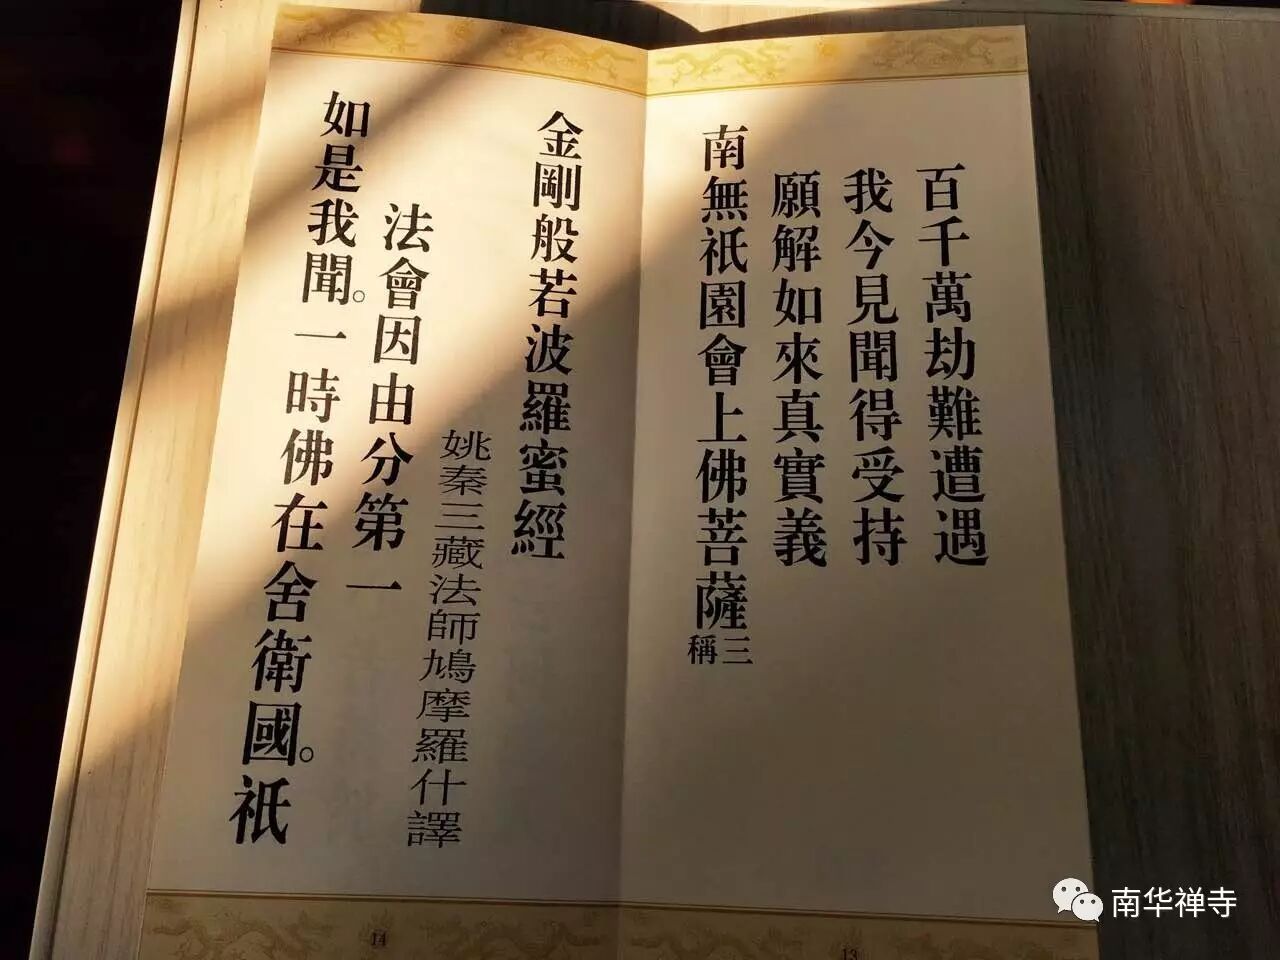 百千萬劫難遭遇
我今見聞得受持
願解如來真實義
南無祇園會上佛菩薩三稱
13
金剛般若波羅蜜經
姚秦三藏法師鳩摩羅什譯
法會因由分第一
如是我聞。一時佛在舍衛國。祇
14
南华禅寺